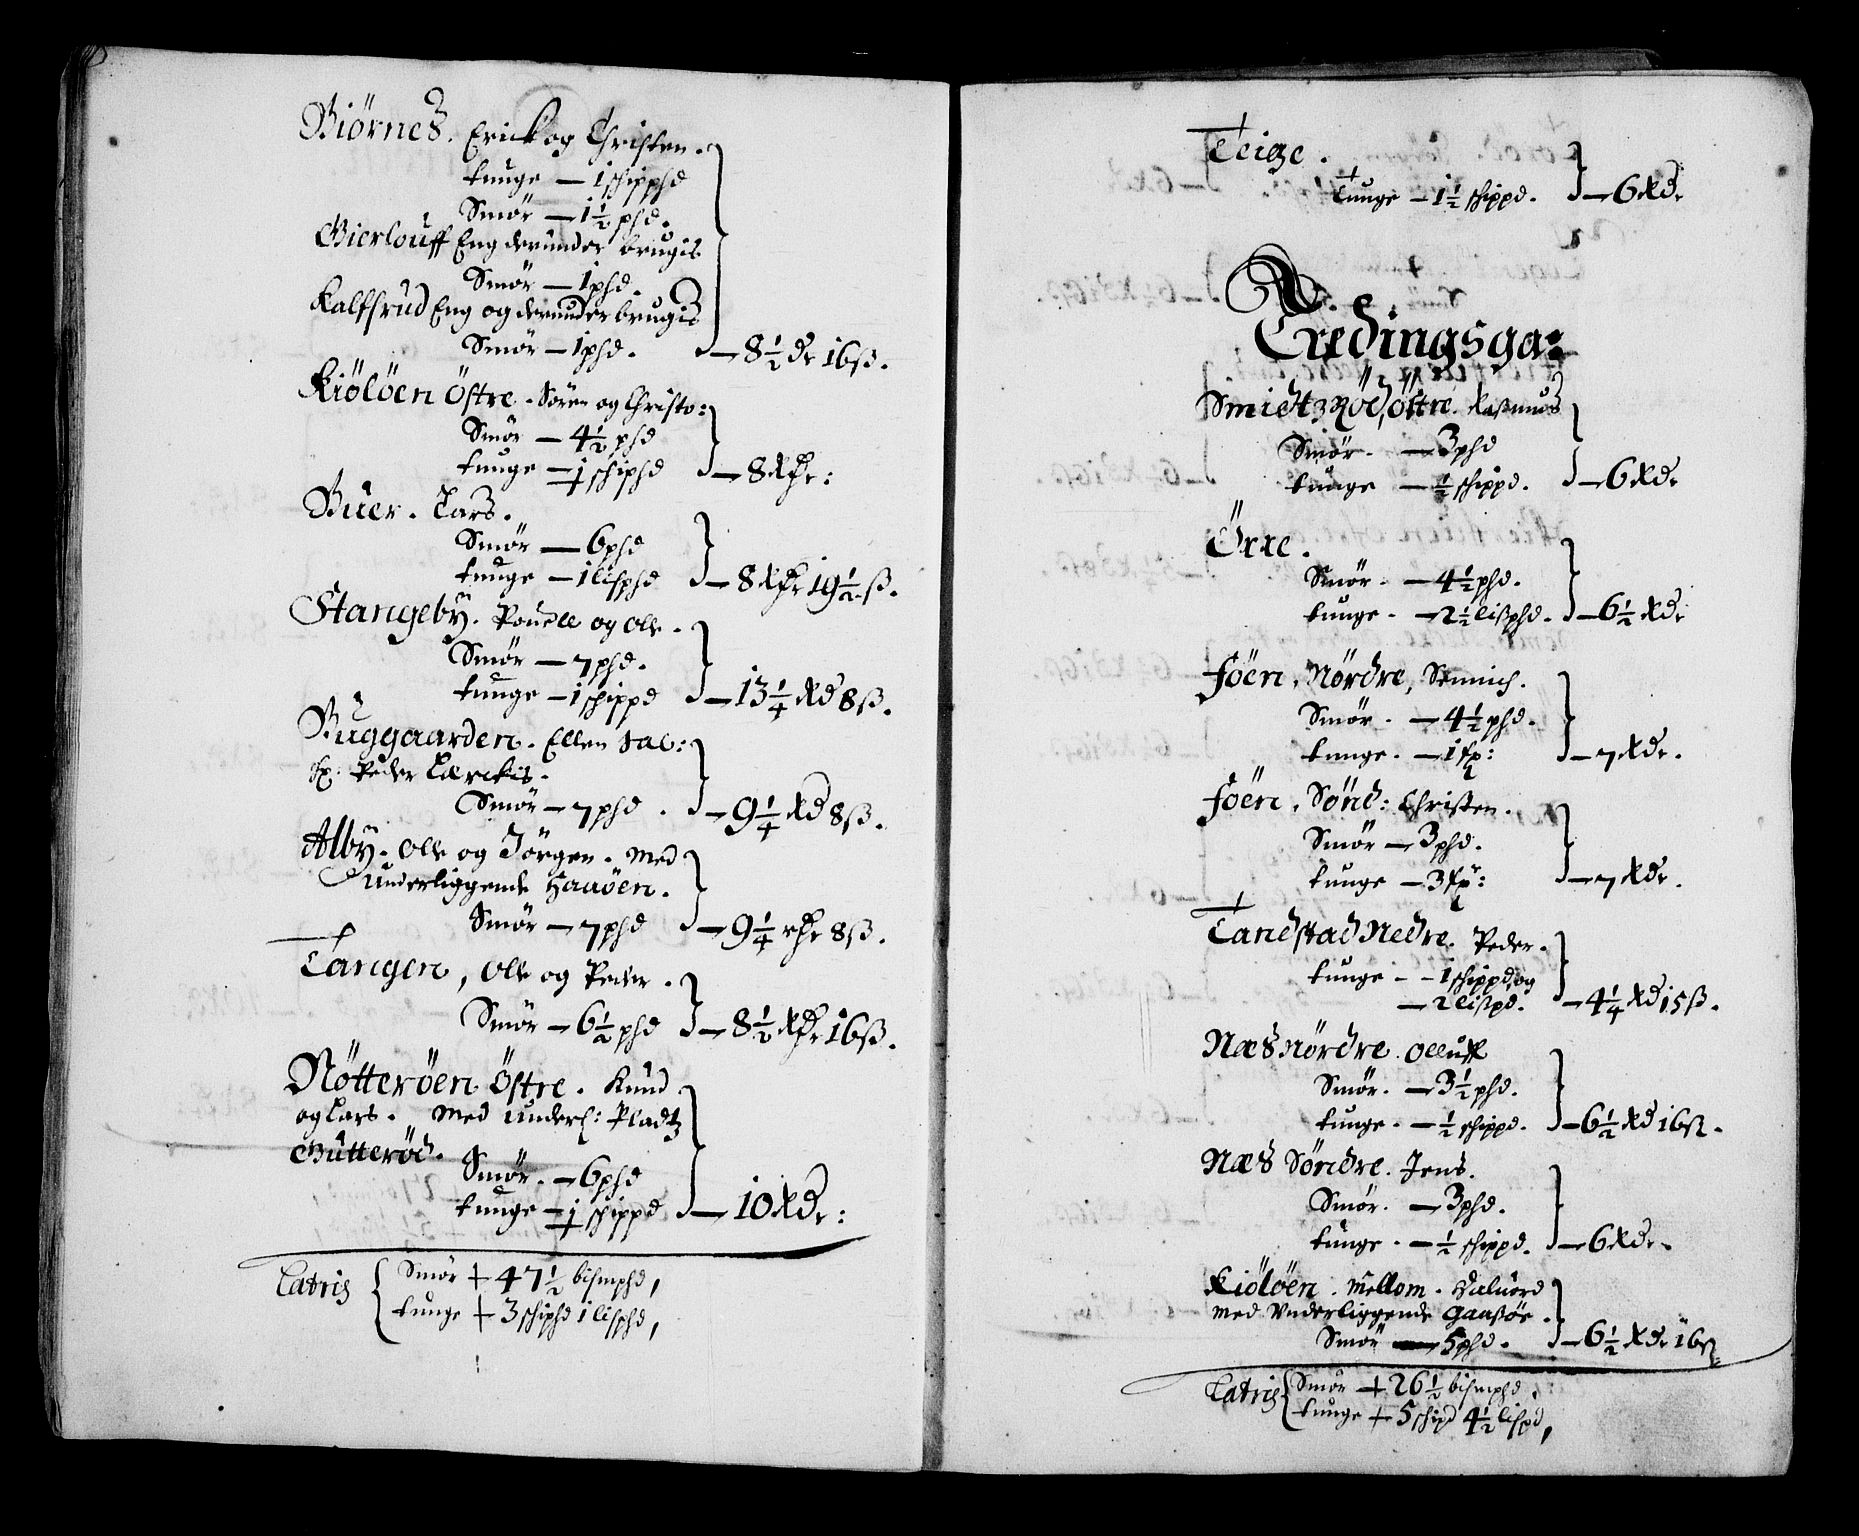 Biörnes. Erick og Christen.
tunge — 1 schipphd
Smör — 1½ phd.
Gierlouff Eng derunder brugis
Smör — 1 phd.
Kalffsrud Eng og derunder brugis
Smör — 1 phd. — 8½ dr 16 ß.
Kiölöen Östre. Sören og Christo:
Smör — 4½ phd
tunge — 1 schiphd — 8 Rdr:
Buer. Lars.
Smör — 6 phd
tunge — 1 lisphd — 8 Rdr 19½ ß.
Stangeby. Pouell og Ole.
Smör — 7 phd.
tunge — 1 schippd — 13¼ Rd 8 ß.
Buggaarden. Ellen Sal:
Sp. Peder Lærckis.
Smör — 7 phd. — 9¼ Rd 8 ß.
Alby. Ole og Jörgen. Med
underliggende Haaöen.
Smör — 7 phd — 9¼ rdr 8 ß.
Tangen, Ole og Peder.
Smör — 6½ phd — 8½ Rdr 16 ß.
Nötteröen Östre. Knud
og Lars. Med underl: Pladtz
Butteröd.
Smör. — 6 phd
tunge — 1 schippd — 10 Rdr:
Latris Smör + 47½ bismphd,
tunge + 3 schiphd 1 lisphd,
Teige.
Tunge — 1½ schippd. — 6 Rdr
A.
Tredingsga:
SmidtzRöd, östre. Rasmus
Smör. — 3 phd
tunge — ½ schippd. — 6 Rdr
Örre.
Smör. — 4½ phd.
tunge. — 2½ lißphd. — 6½ Rdr
Föen, Nördre, Seimich.
Smör. — 4½ phd.
tunge. — 1 fp: — 7 Rdr.
Föen, Sönd: Christen.
Smör — 3 phd.
tunge — 3 fp: — 7 Rdr.
Tandstad Nedre. Peder.
tunge — 1 schippd, og
— 2 lißpd. — 4¼ Rd 15 ß.
Næs Nördre. Olluff
Smör. — 3½ phd.
tunge. — ½ schippd. — 6½ Rd 16 ß.
Næs Söndre. Jens.
Smör. — 3 phd.
tunge. — ½ schippd. — 6 Rdr.
Kiölöen. Mellom. Haluord
med Vnderliggende Gaaßöe.
Smör — 5 phd. — 6½ Rdr 16 ß
Latris Smör + 26½ bismphd.
tunge + 5 schipd 4½ lispd,